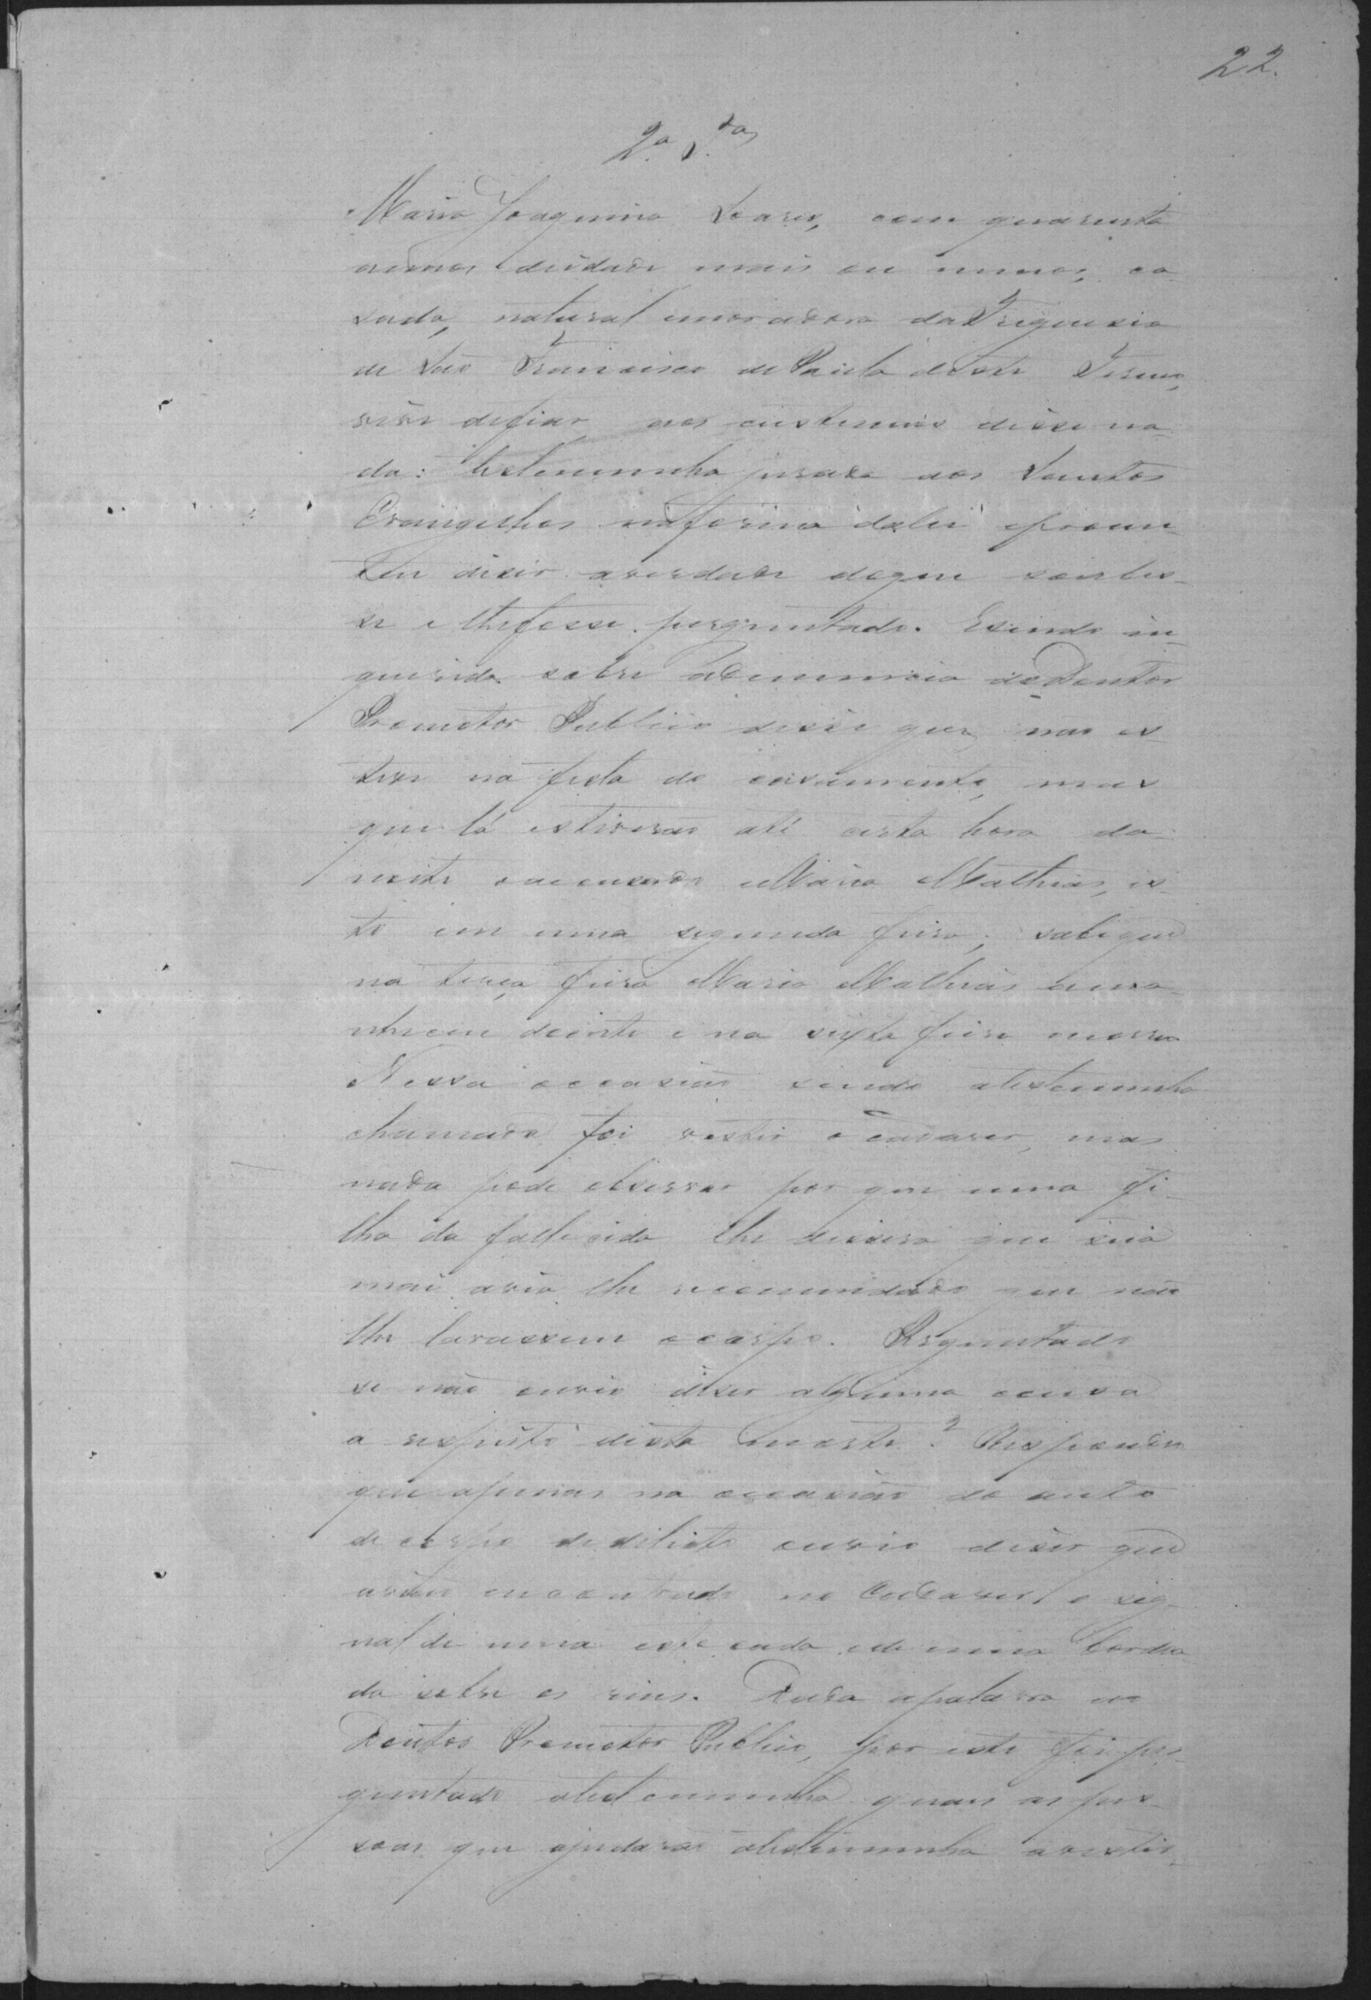 22.
2.a T.da
Maria Joaquina Soares, com quarenta
annos deidade mais ou menos, ca
sada, natural emoradora da Freguezia
de São Francisco de Paula deste Termo,
vive defiar aos custumes disse na
da: testemunha jurada aos Santos
Evangelhos naforma dalei eprome
teu diser averdade doque soubes-
se e lhefosse perguntado. Esendo in-
querida sobre adenuncia do Doutor
Promotor Publico disse que não es-
teve na festa do casamento, mas
que lá estiveraõ até certa hora da
noite oaccusado e Maria Mathias, is-
to em uma segunda feira; sabe que
na terça feira Maria Mathias ama-
nheceu doente e na sexta feira morreu
Nessa occasião sendo atestemunha
chamada foi vestir o cadaver, mas
nada pode observar por que uma fi-
lha da fallecida lhe dissera que sua
mai avia lhe recommendado que não
lhe lavassem ocorpo. Perguntado
se não ouvio diser alguma cousa
a respeito desta morte? Respondeu
que apenas na occasião do auto
de corpo dedelicto ouvio diser que
avião encontrado no cadaver o sig-
nal de uma estocada e de uma borda
da sobre os rins. Dada apalavra ao
Doutor Promotor Publico, por este foi per-
guntado atestemunha quaes as pes-
soas que ajudaraõ atestemunha avestir